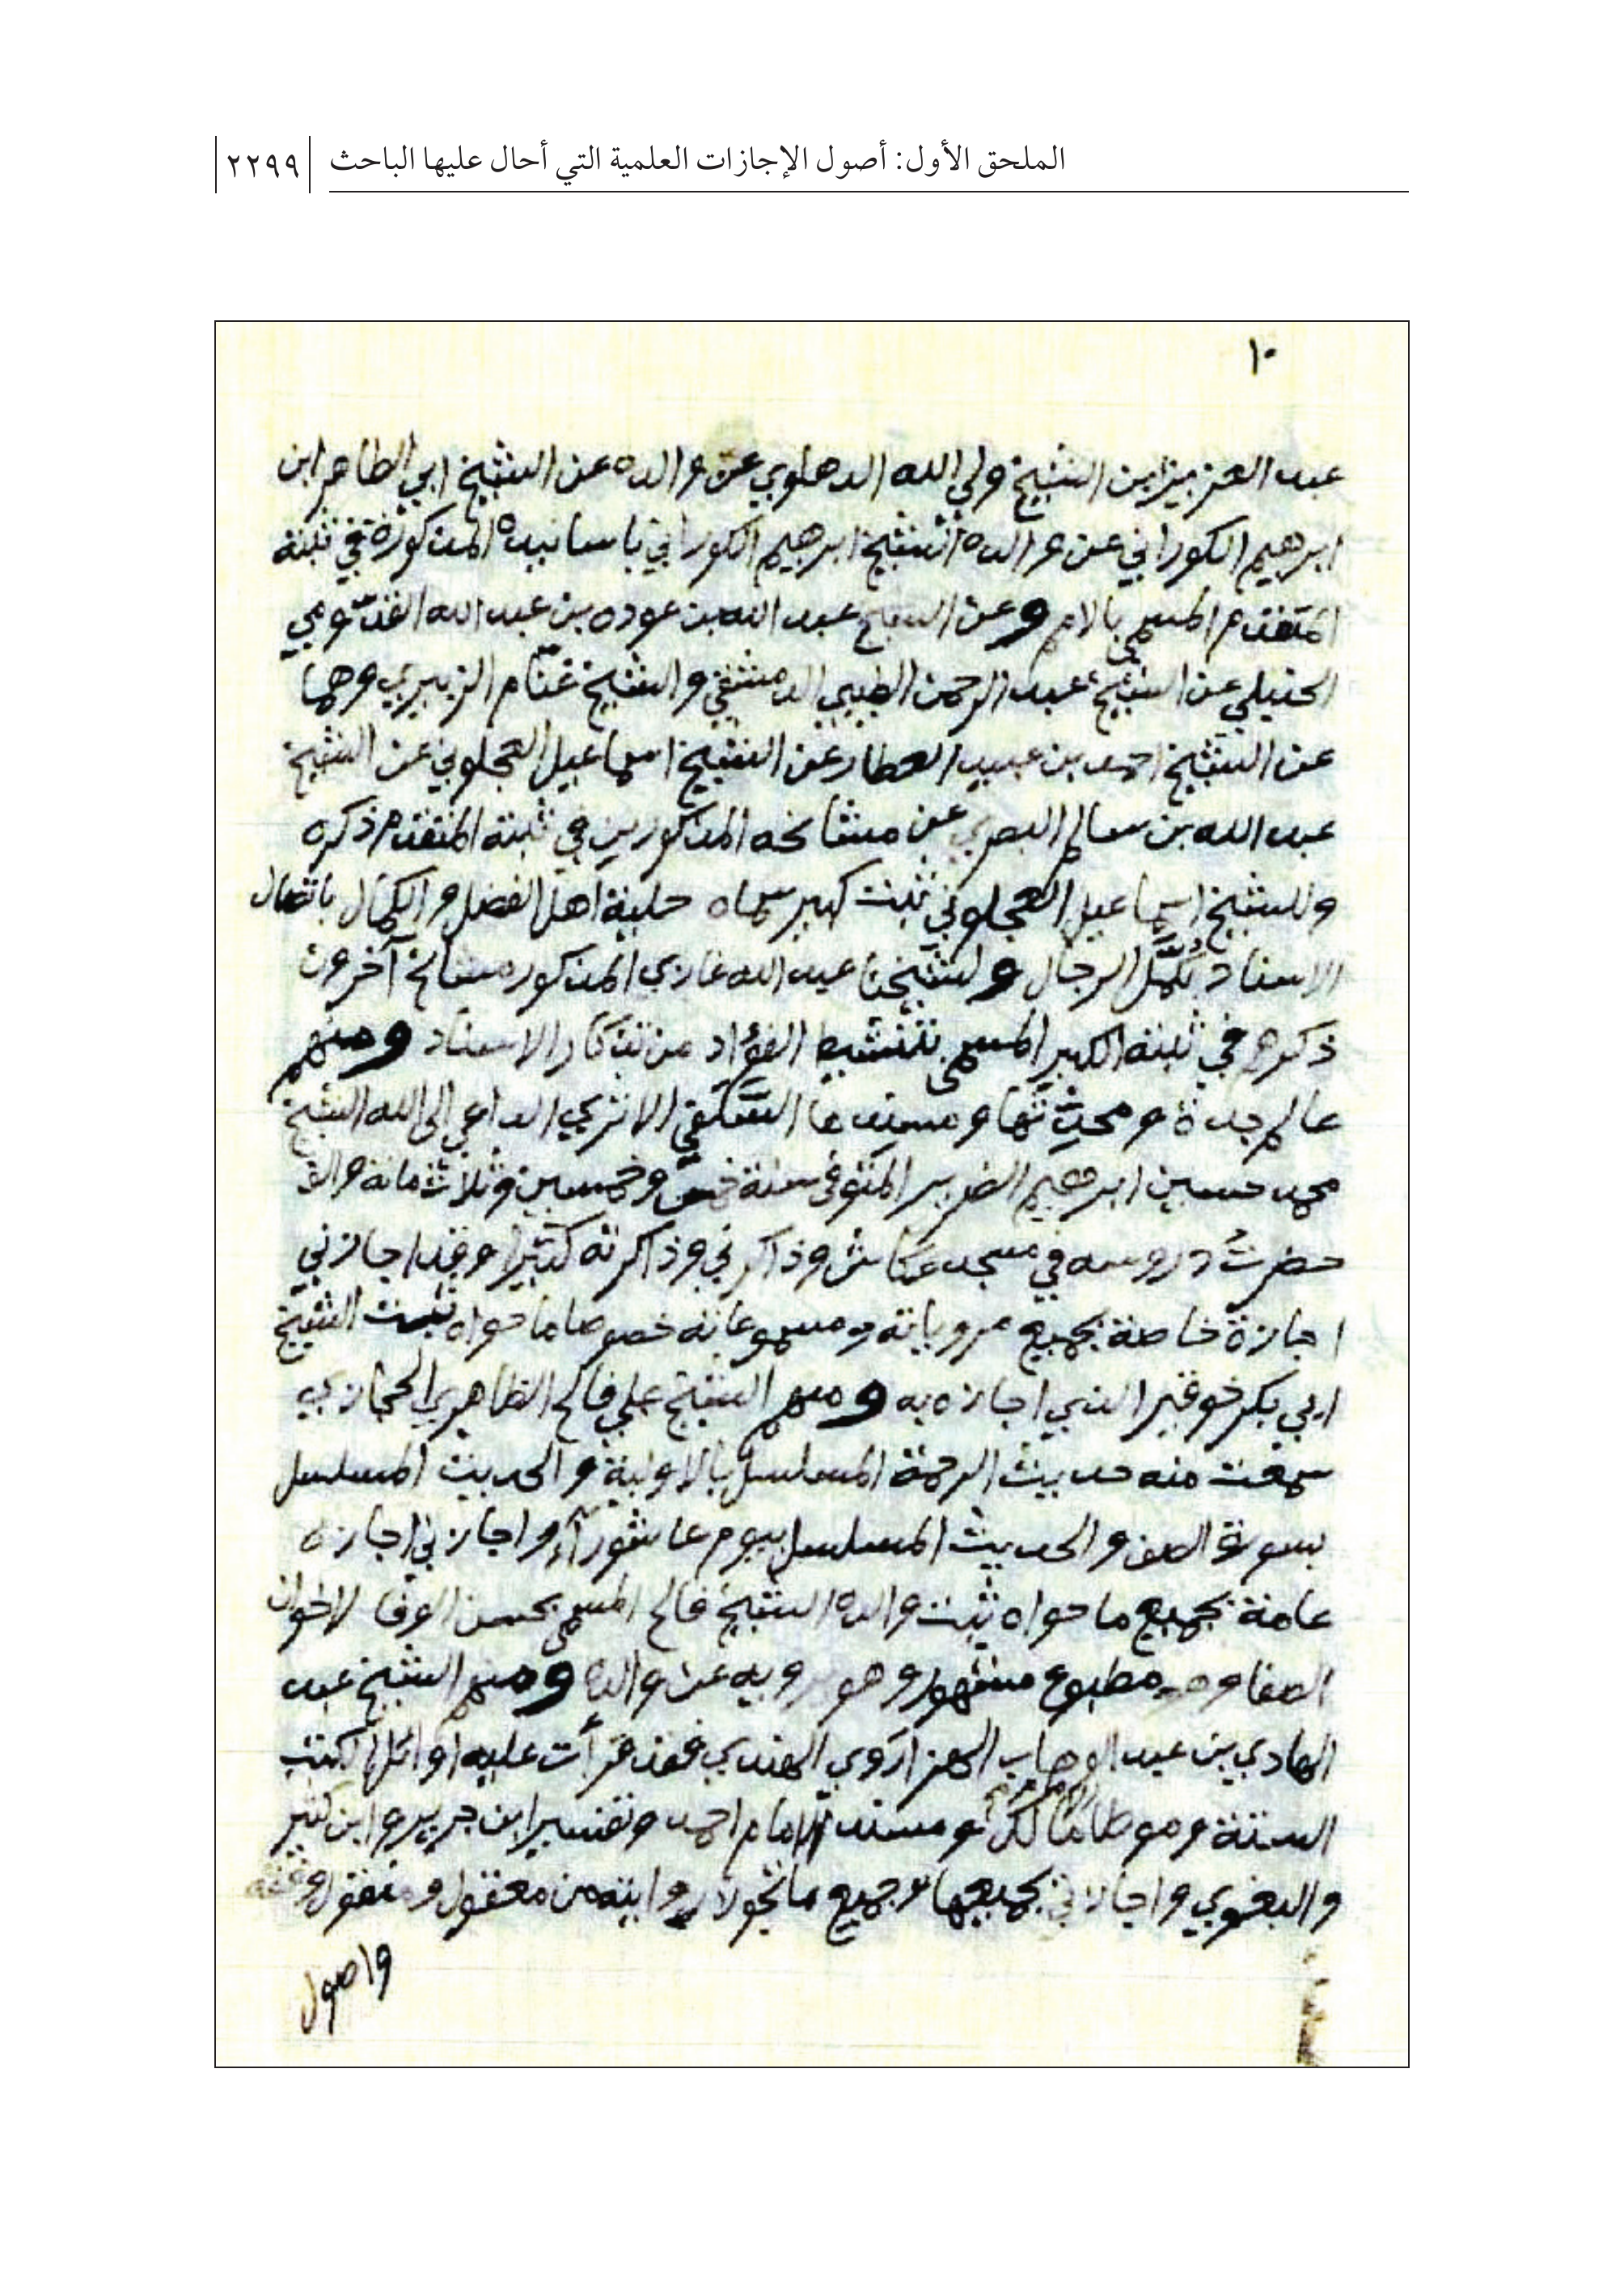 الملحق الأول: أصول الإجازات العلمية التي أحال عليها الباحث ٢٢٩٩
١٠
عبد العزيز بن الشيخ ولي الله الدهلوي عن والده عن الشيخ ابي الطاهر ابن
ابرهيم الكوراني عن والده الشيخ ابرهيم الكوراني باسانيده المذكورة في ثبته
المتقدم المسمى بالامم وعن الشيخ عبد الله بن عوده بن عبد الله القدّومي
الحنبلي عن الشيخ عبد الرحمن الطيبي الدمشقي والشيخ غنّام الزبيري وهما
عن الشيخ احمد بن عبيد العطار عن الشيخ اسماعيل العجلوني عن الشيخ
عبد الله بن سالم البصري عن مشائخه المذكورين في ثبته المتقدم ذكره
وللشيخ اسماعيل العجلوني ثبت كبير سماه حلية اهل الفضل والكمال باتصال
الاسناد بكمّل الرجال ولشيخنا عبد الله غازي المذكور مشائخ آخرون
ذكرهم في ثبته الكبير المسمى تنشيط الفؤاد من تذكار الاسناد ومنهم
عالم جدة ومحدثها ومسندها السّلفي الاثري الداعي الى الله الشيخ
محمد حسين ابرهيم الضرير المتوفى سنة خمس وخمسين وثلاثمائة والف
حضرتُ دروسه في مسجد عكاش وذاكرني وذاكرته كثيرا وقد اجازني
اجازة خاصة بجميع مروياته ومسموعاته خصوصا ما حواه ثبت الشيخ
ابي بكر خوقير الذي اجازه به ومنهم الشيخ علي فالح الظاهري الحجازي
سمعت منه حديث الرحمة المسلسل بالاولية والحديث المسلسل
بسورة الصف والحديث المسلسل بيوم عاشورآء واجازني اجازة
عامة بجميع ما حواه ثبت والده الشيخ فالح المسمى بحسن الوفا لاخوان
الصفا وهو مطبوع مشهور وهو يرويه عن والده ومنهم الشيخ عبد
الهادي بن عبد الوهاب الهزاروي الهندي فقد قرأت عليه اوائل الكتب
الستة وموطا مالك ومسند الامام احمد وتفسير ابن جرير وابن كثير
والبغوي واجازني بجميعها وجميع ما تجوز له روايته من معقول ومنقول وفقه
واصول